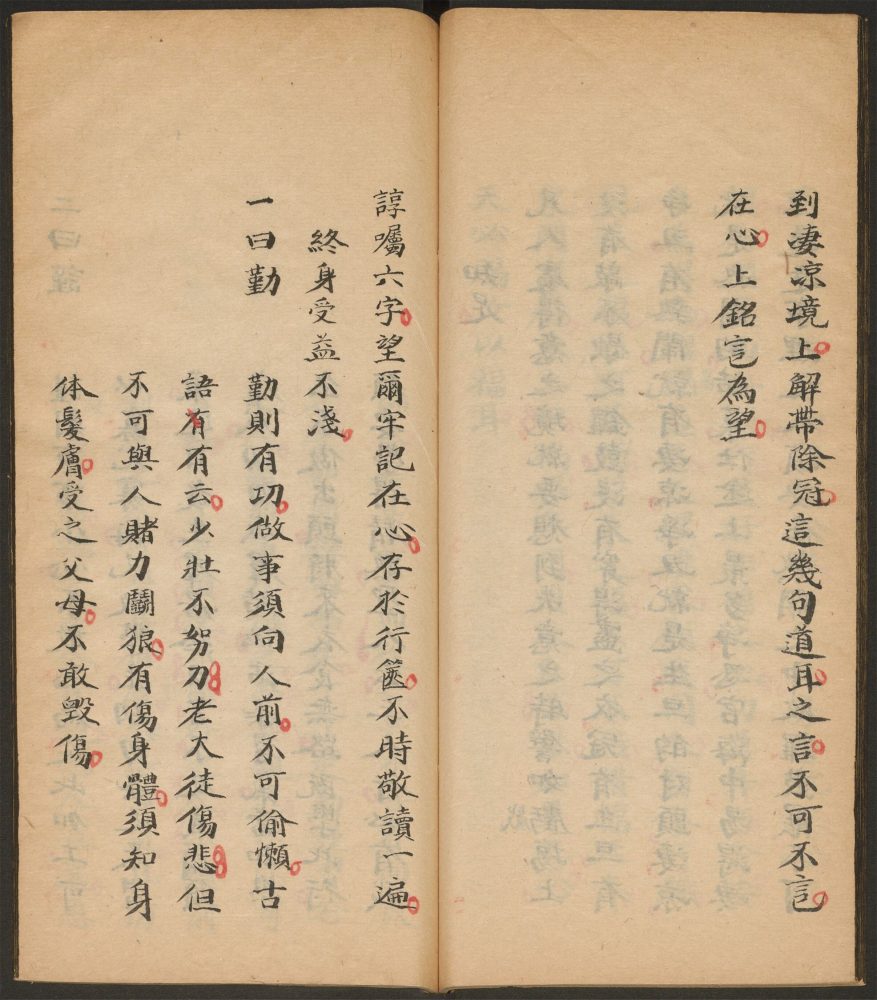 到淒凉境上解帶除冠這幾句道耳之言不可不言
在心上銘言為望
諄囑六字望爾牢記在心存於行篋不時敬讀一遍
終身受益不淺
一曰勤
勤則有功做事須向人前不可偷懶古
語有有云少壯不努刀老大徒傷悲但
不可與人賭力鬬狼有傷身體須知身
体髮膚受之父母不敢毀傷